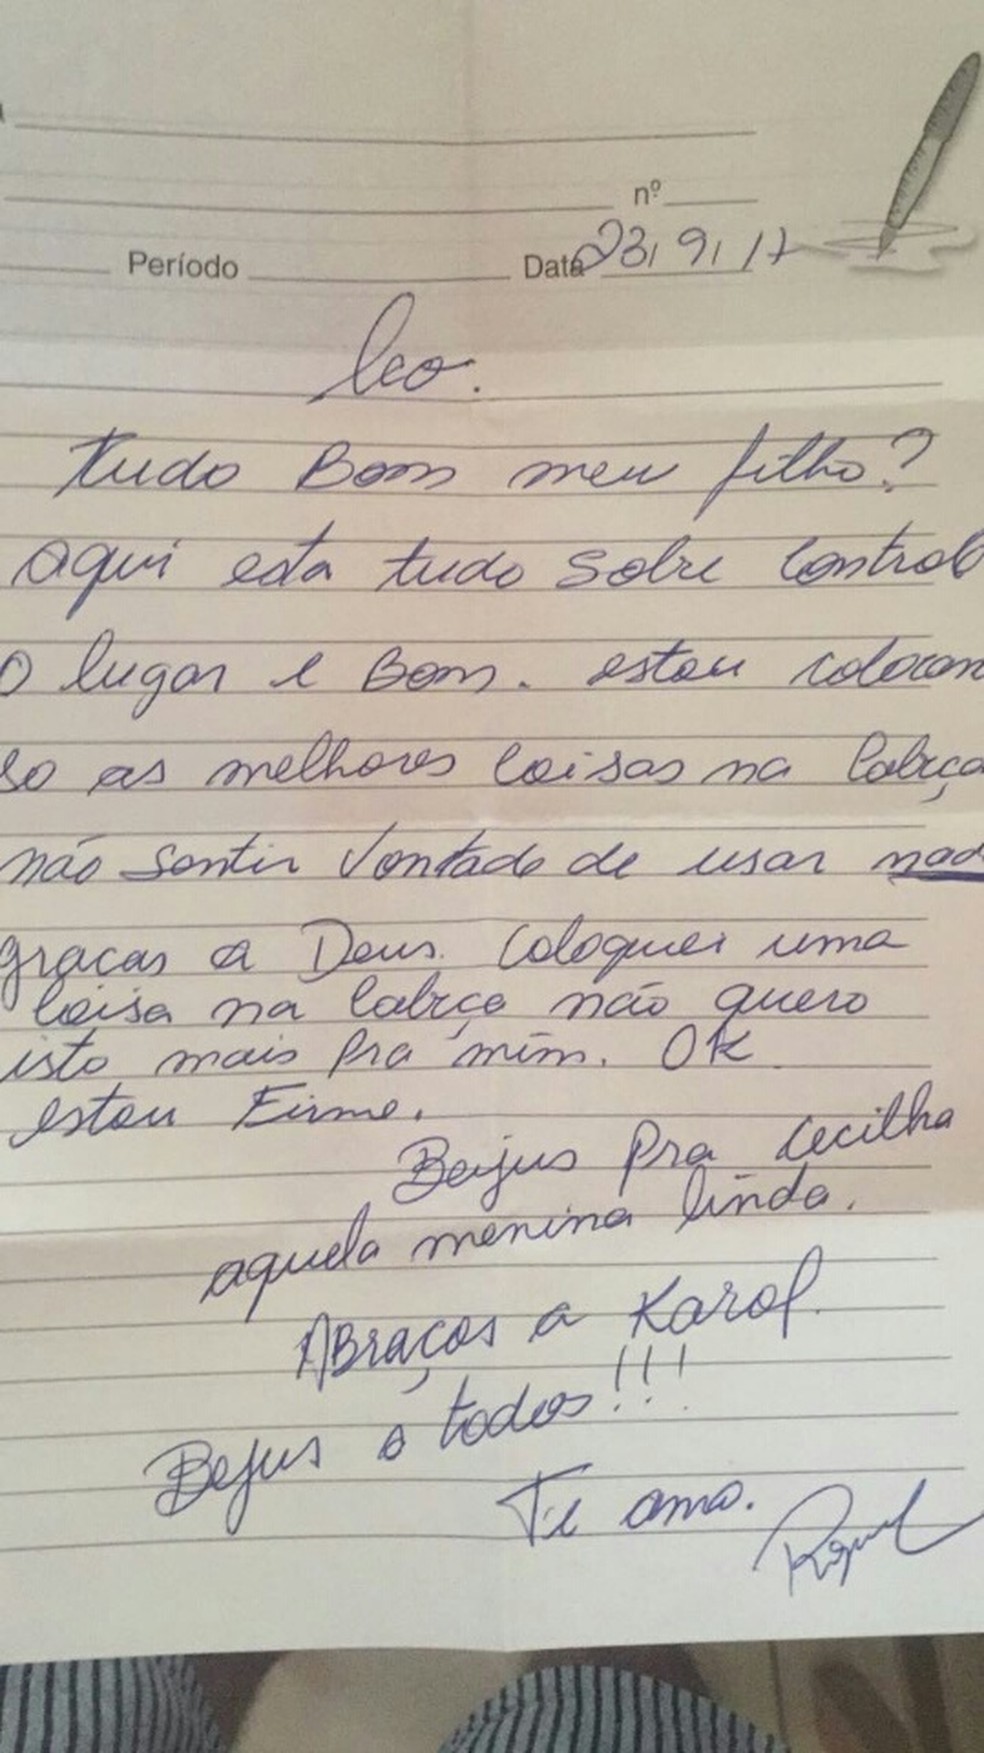 nº
Período Data 23/9/17
Leo.
Tudo Bom meu filho?
Aqui esta tudo Sobre Controle
O lugar e Bom. estou colocan
do as melhores Coisas na Cabeça
não Sentir Vontade de usar nad
graças a Deus. Coloquei uma
Coisa na Cabeça não quero
isto mais Pra mim. OK
estou Firme.
Beijus Pra Cecilha
aquela menina linda.
Abraços a Karol.
Bejus a todos!!!
Te amo.